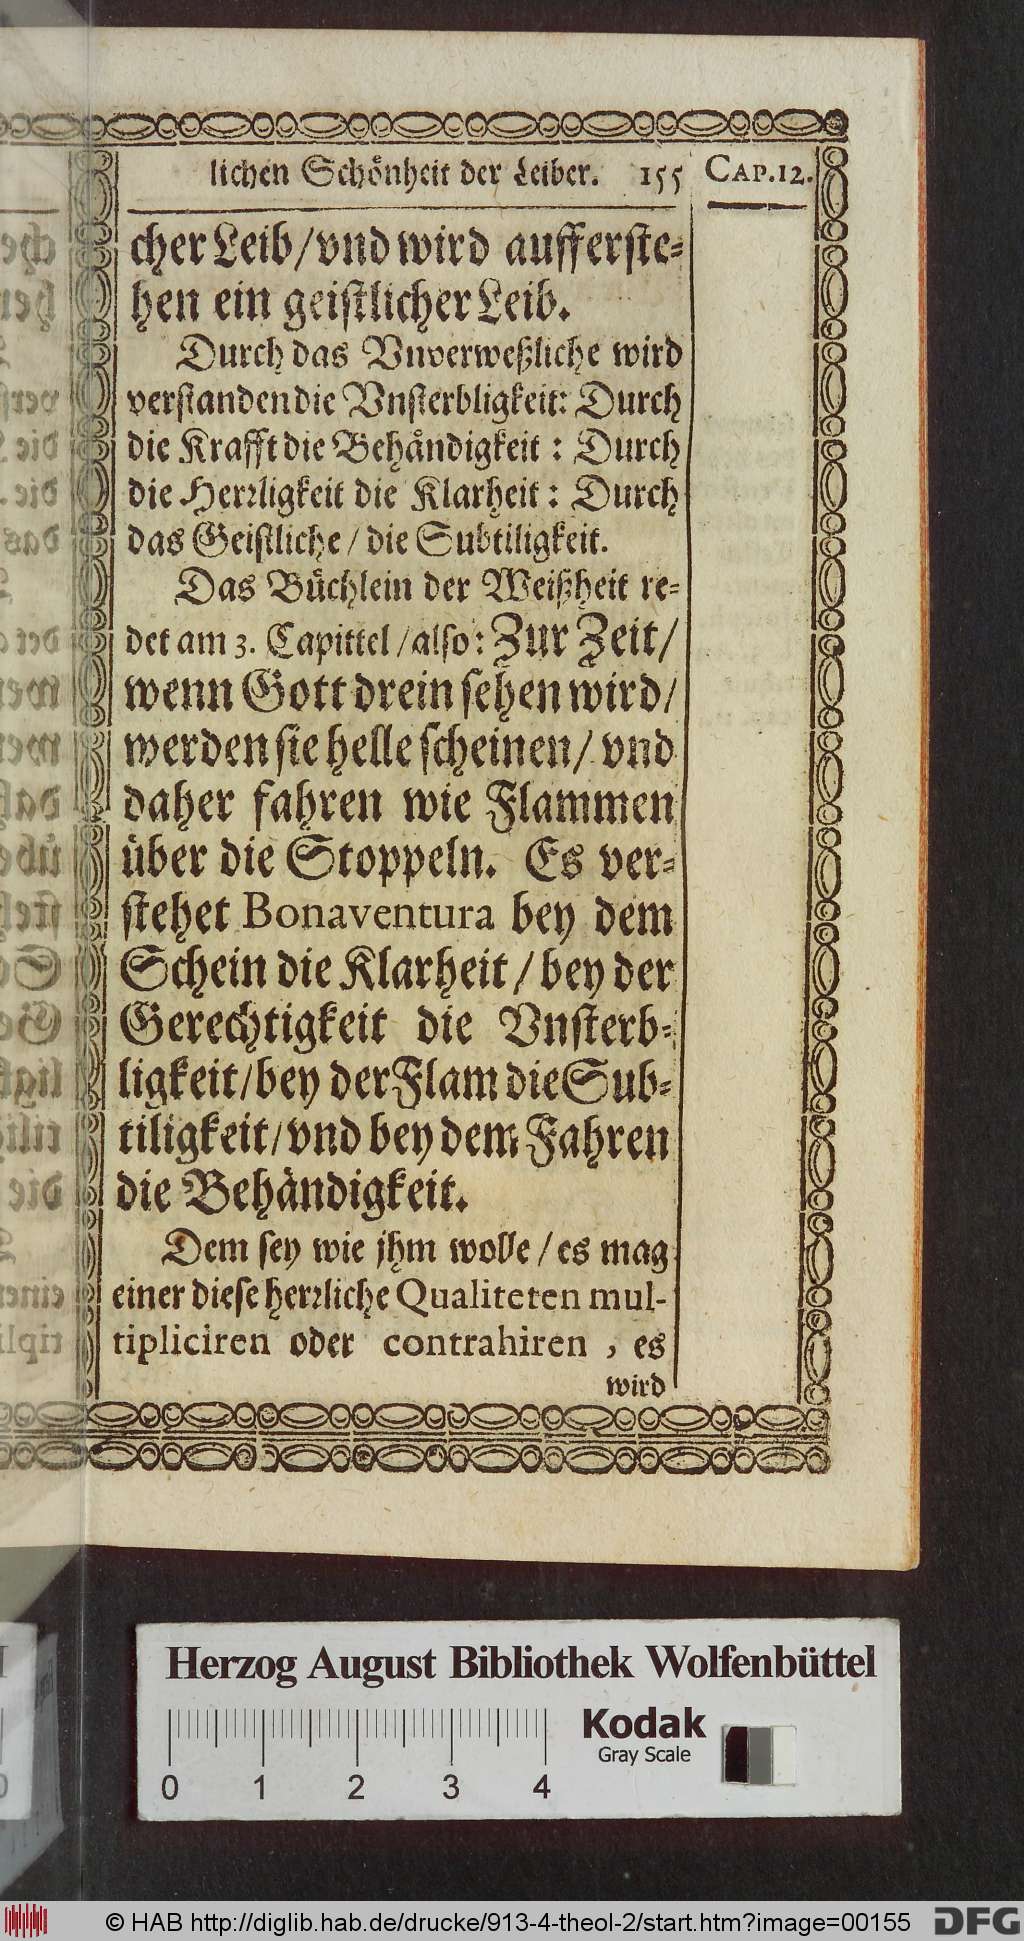 lichen Schönheit der Leiber. 155 CAP.12.
cher Leib/vnd wird aufferste-
hen ein geistlicher Leib.
Durch das Vnverweßliche wird
verstanden die Vnsterbligkeit: Durch
die Krafft die Behändigkeit: Durch
die Herrligkeit die Klarheit: Durch
das Geistliche/die Subtiligkeit.
Das Büchlein der Weißheit re-
det am 3. Capittel/also: Zur Zeit/
wenn Gott drein sehen wird/
werden sie helle scheinen/vnd
daher fahren wie Flammen
über die Stoppeln. Es ver-
stehet Bonaventura bey dem
Schein die Klarheit/bey der
Gerechtigkeit die Vnsterb-
ligkeit/bey der Flam die Sub-
tiligkeit/vnd bey dem Fahren
die Behändigkeit.
Dem sey wie jhm wolle/es mag
einer diese herrliche Qualiteten mul-
tipliciren oder contrahiren, es
wird
Herzog August Bibliothek Wolfenbüttel
Kodak
Gray Scale
0 1 2 3 4
© HAB http://diglib.hab.de/drucke/913-4-theol-2/start.htm?image=00155
DFG